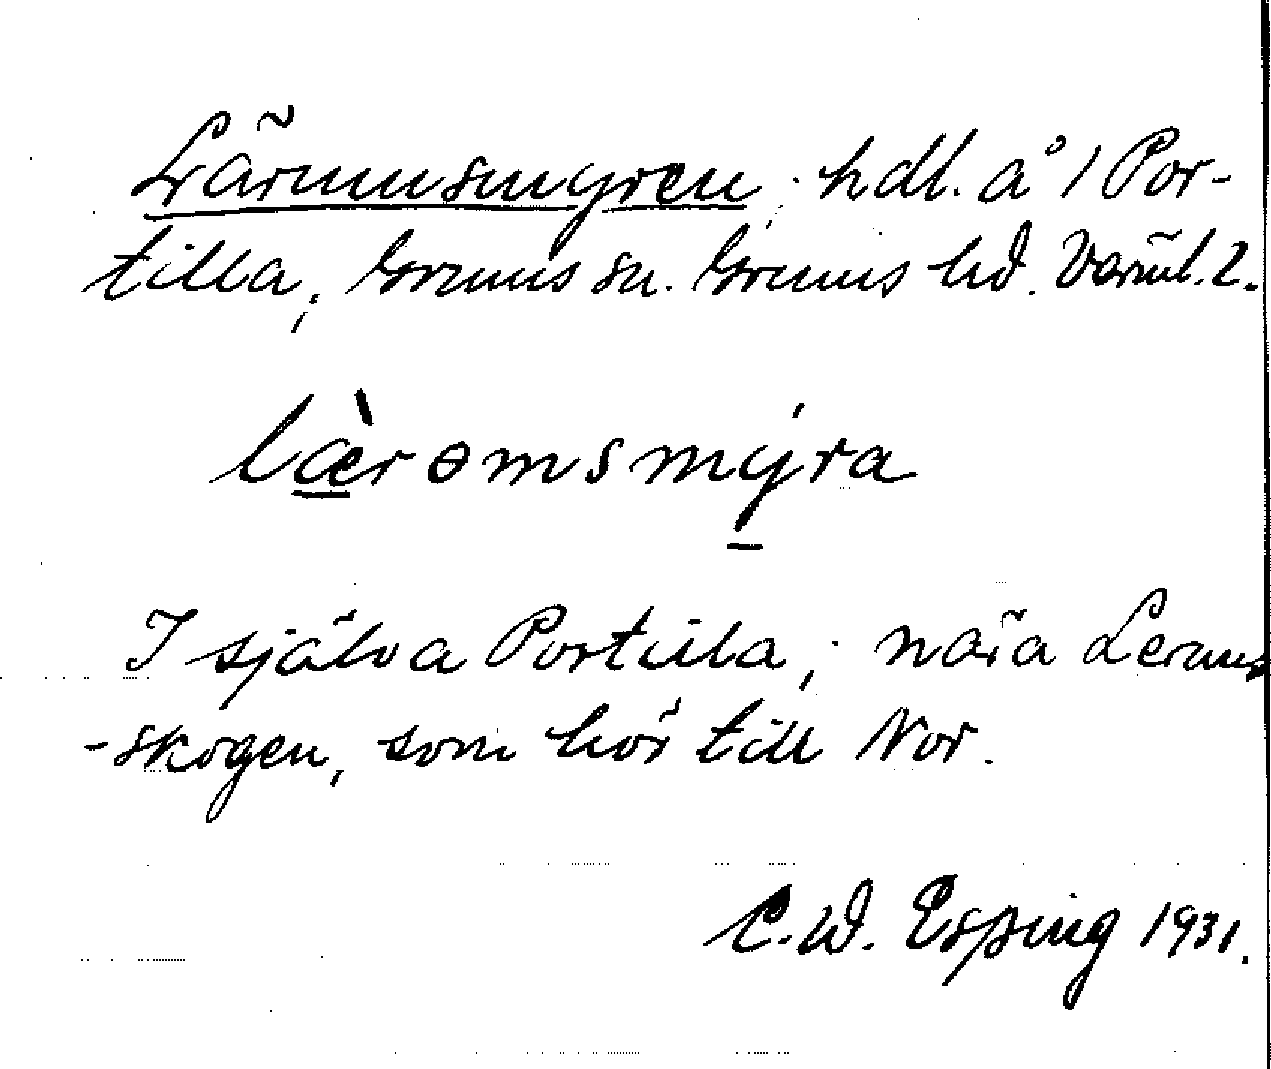 Lärmusmyren, hdl. å 1 Por-
tilla, Grums sn. Grums hd. Värml. l.
læ̀romsmýra
I själva Portilla, nära Lerums
-skogen, som hör till Nor.
C. W. Esping 1931.